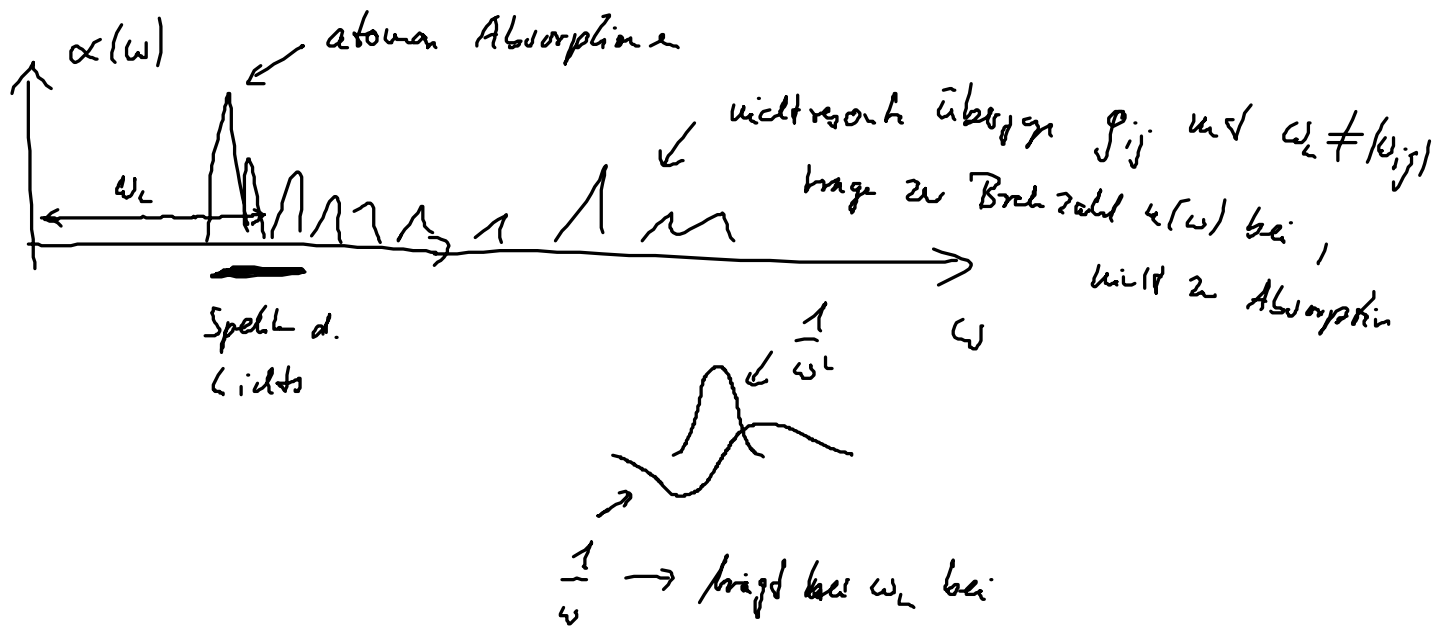 α(ω)
atomare Absorptionen
nichtresonante Übergänge ρij mit ωL ≠ |ωij|
trage zu Brechzahl n(ω) bei,
nicht zu Absorption
ωL
Spektrum d.
Lichts
ω
1/ω²
1/ω → trägt bei ωL bei